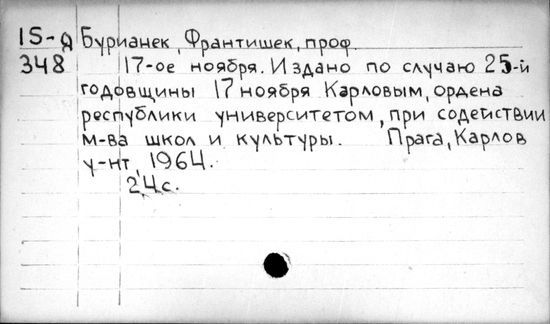 15-я Бурианек, Франтишек, проф.
348 17-ое ноября. Издано по случаю 25-й
годовщины 17 ноября Карловым, ордена
республики университетом, при содействии
м-ва школ и культуры. Прага, Карлов
у-нт, 1964.
24с.